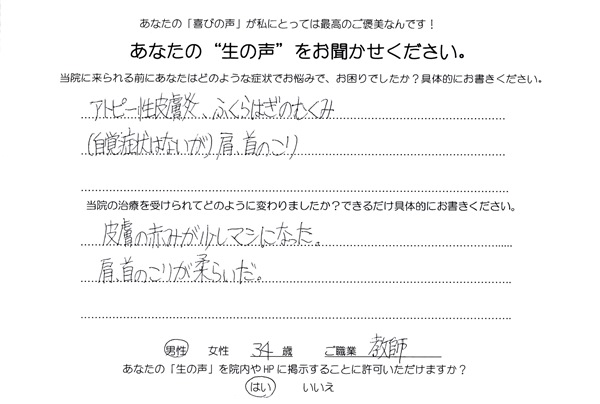 あなたの「喜びの声」が私にとっては最高のご褒美なんです！
あなたの“生の声”をお聞かせください。
当院に来られる前にあなたはどのような症状でお悩みで、お困りでしたか？具体的にお書きください。
アトピー性皮膚炎、ふくらはぎのむくみ
(自覚症状はないが) 肩、首のこり
当院の治療を受けられてどのように変わりましたか？できるだけ具体的にお書きください。
皮膚の赤みが少しマシになった。
肩、首のこりが柔らいだ。
男性 女性 34 歳 ご職業 教師
あなたの「生の声」を院内やHPに掲示することに許可いただけますか？
はい いいえ